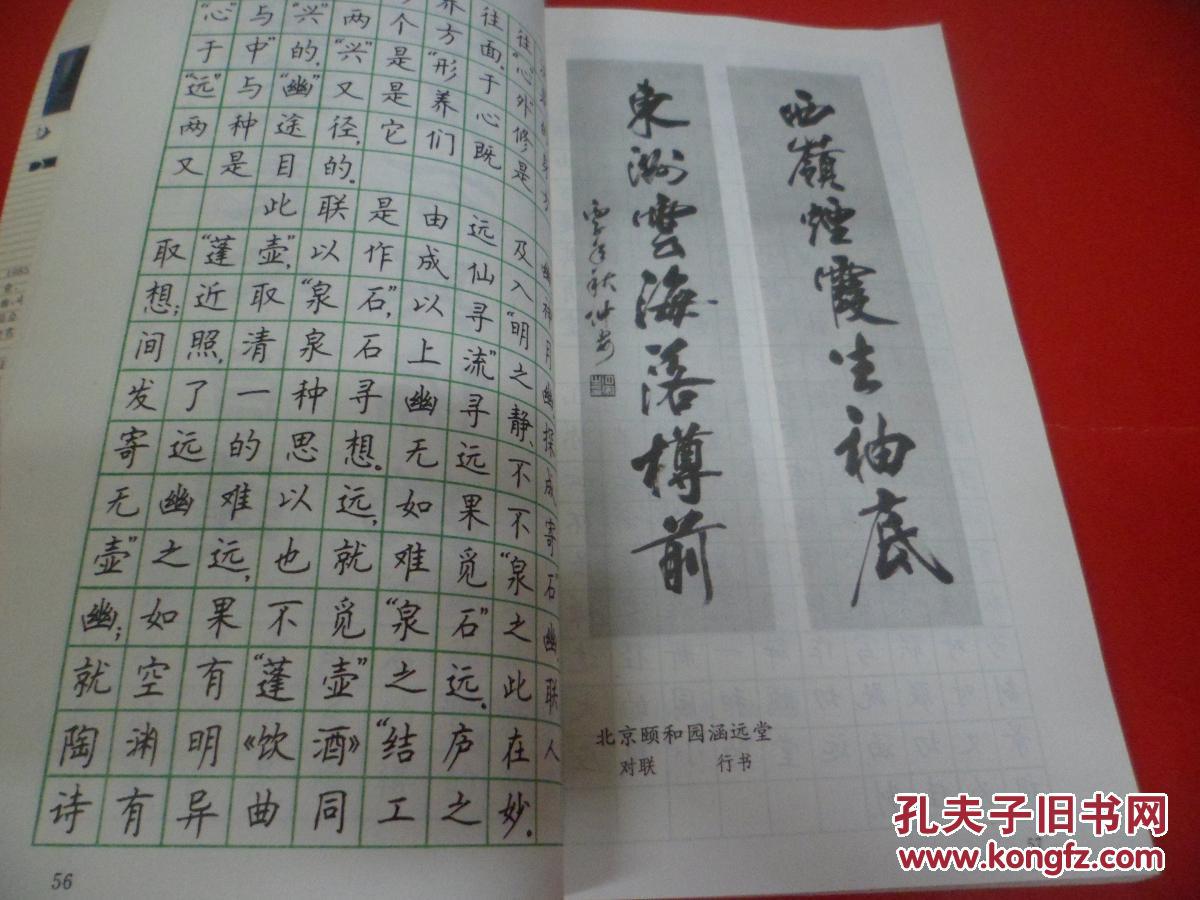 “心”与“兴”两个方面，“心
于“中”的，“兴”是“形于外”
“远”与“幽”又是养心修
两种途径，它们既是
又是目的。
此联是由远及幽
取“蓬壶”，以作成仙入神
想；近取“泉石”，以寻“明月
间照，清泉石上流”之幽，
发了一种寻幽寻静、探
寄远的思想。无远不成
无幽难以远，如果不寄
壶”之远，也就难觅“泉石
幽；如果不觅“泉石”之幽，
就空有“蓬壶”之远。此联
陶渊明《饮酒》“结庐在人
诗有异曲同工之妙。
56
西嶺煙霞生袖底
東洲雲海落樽前
北京颐和园涵远堂
对联 行书
57
孔夫子旧书网
www.kongfz.com